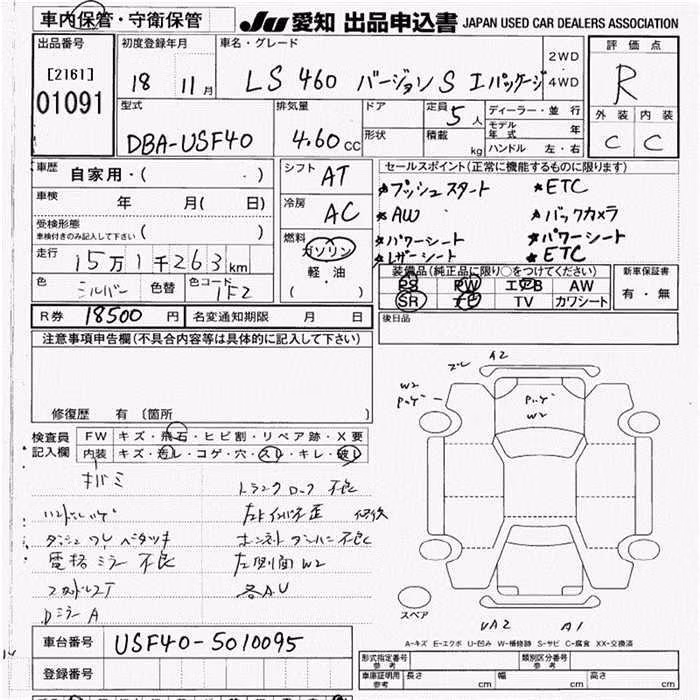 車内保管・守衛保管
JU 愛知 出品申込書 JAPAN USED CAR DEALERS ASSOCIATION
出品番号 初度登録年月 車名・グレード 評価点
[2161] 18 11月 LS 460 バージョンS Iパッケージ 2WD・4WD R
01091 型式 排気量 ドア 定員 5人 ディーラー・並行 外装 内装
DBA-USF40 4.60cc 形状 積載 kg モデル年式 年 C C
ハンドル 左・右
車歴 自家用・( ・ ) シフト AT セールスポイント(正常に機能するものに限ります)
車検 年 月( 日) 冷房 AC ★プッシュスタート ★ETC
受検形態 ( ) ★AW ★バックカメラ
車検付きのみ記入して下さい 燃料 ガソリン ★パワーシート ★パワーシート
走行 15万1千263km 軽・油 ★レザーシート ★ETC
( ・ ) 装備品(純正品に限り○をつけてください) 新車保証書
色 シルバー 色替 色コード 1F2 PS PW エアB AW 有・無
SR TV カワシート
R券 18500円 名変通知期限 月 日 後日品
注意事項申告欄(不具合内容等は具体的に記入して下さい)
ズレ A2
W2
W2
修復歴 有〔箇所 〕
検査員 FW キズ・飛石・ヒビ割・リペア跡・X要
記入欄 内装 キズ・汚レ・コゲ・穴・スレ・キレ・破レ
トランクロック不良
ダッシュワレベタツキ
電格ミラー不良 左側面W2
各AU
DミラーA
スペア
UA2 A1
A-キズ E-エクボ U-凹み W-補修跡 S-サビ C-腐食 XX-交換済
車台番号 USF40-5010095 形式指定番号 参考 類別区分番号 参考
登録番号 車庫証明用 参考 長さ cm 幅 cm 高さ cm